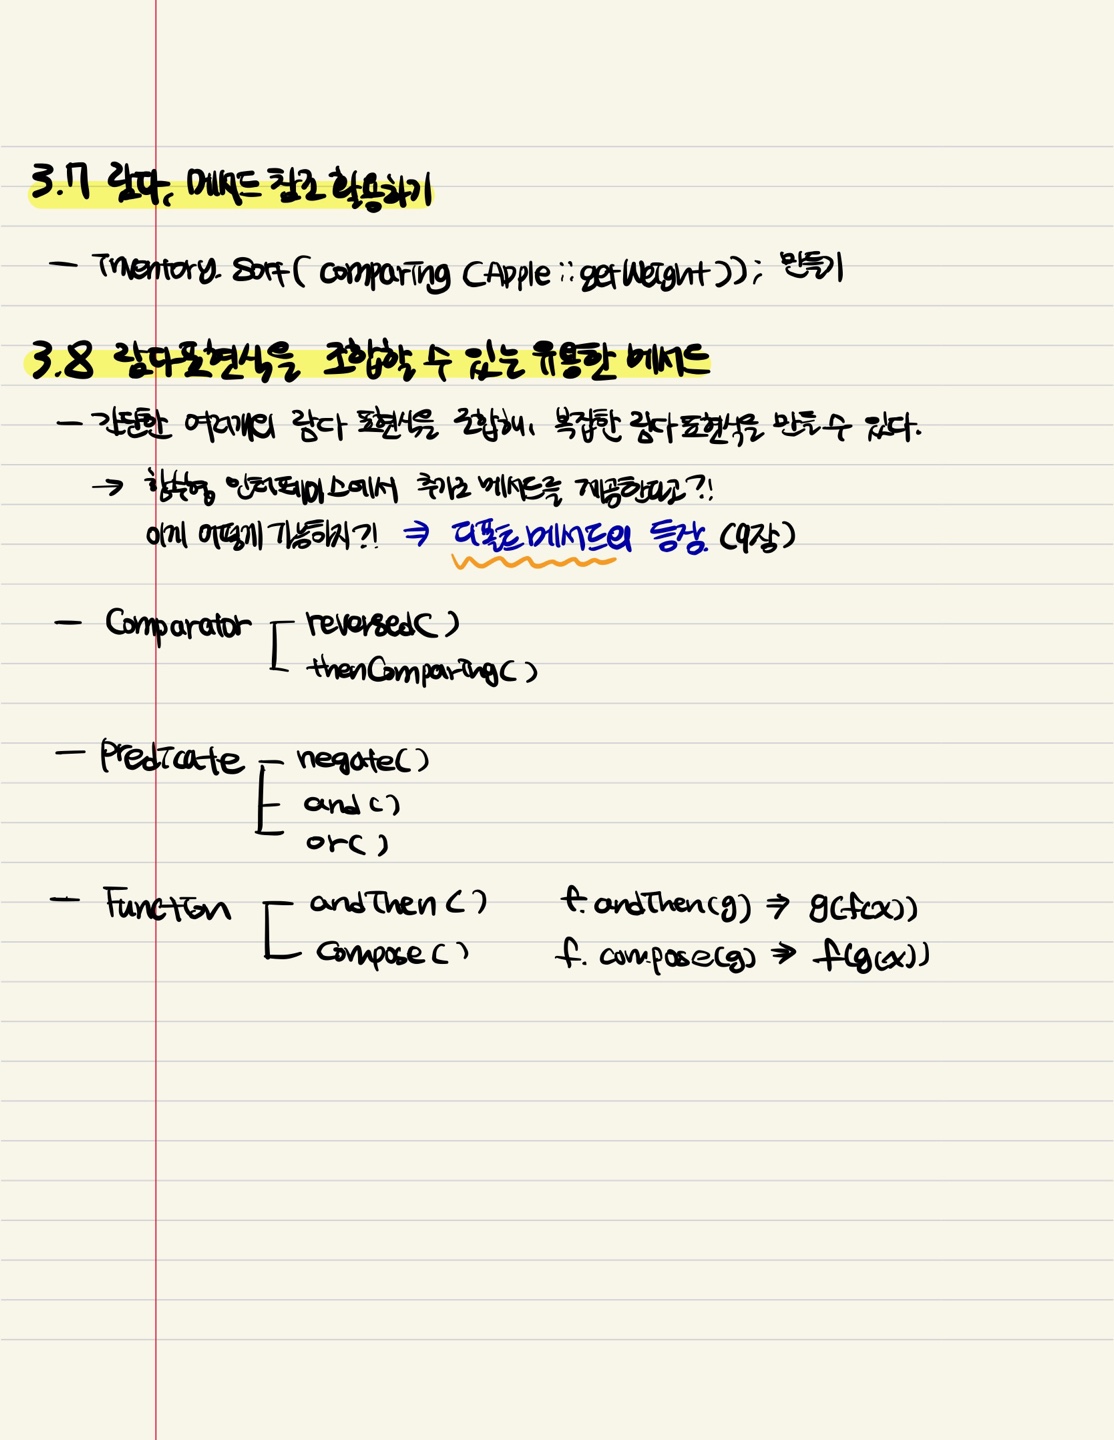 3.7 람다, 메서드 참조 활용하기
- Inventory.sort( comparing (Apple::getWeight)); 만들기
3.8 람다 표현식을 조합할 수 있는 유용한 메서드
- 간단한 여러개의 람다 표현식을 조합해, 복잡한 람다 표현식을 만들 수 있다.
→ 함수형 인터페이스에서 추가로 메서드를 제공한다고?!
이게 어떻게 가능하지?! ⇒ 디폴트 메서드의 등장. (9장)
- Comparator reversed()
thenComparing()
- Predicate - negate()
- and()
or()
- Function andThen() f.andThen(g) ⇒ g(f(x))
Compose() f.compose(g) ⇒ f(g(x))